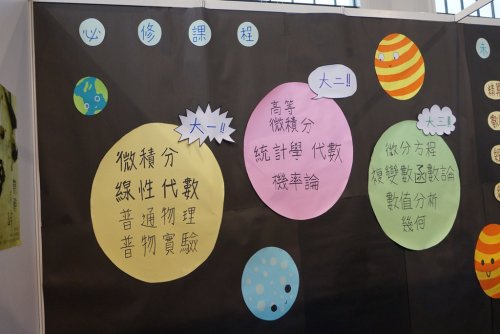 必修課程
大一!!
微積分
線性代數
普通物理
普物實驗
大二!!
高等
微積分
統計學 代數
機率論
大三!!
微分方程
複變數函數論
數值分析
幾何
未
精算
數